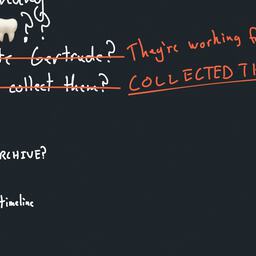 ??
Gertrude? They're working
collect them? COLLECTED TH
ARCHIVE?
timeline